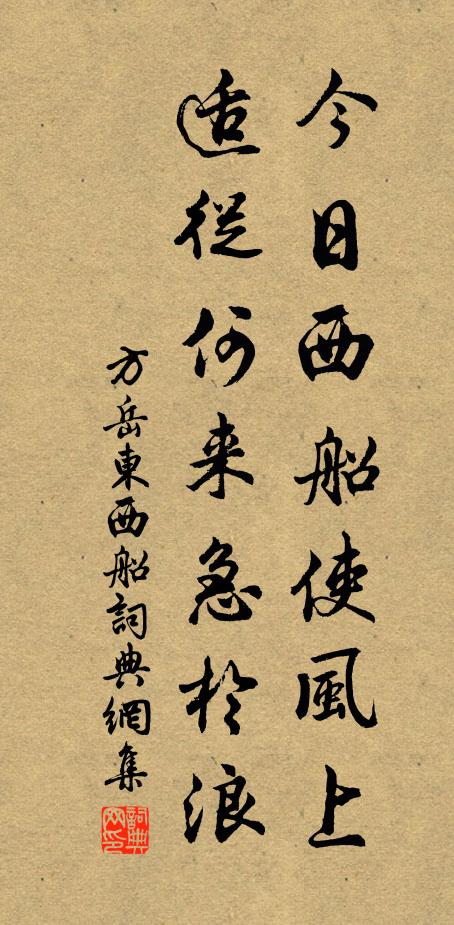 今日西船使風上
适從何来急於浪
方岳東西船詞典網集
詞典网印